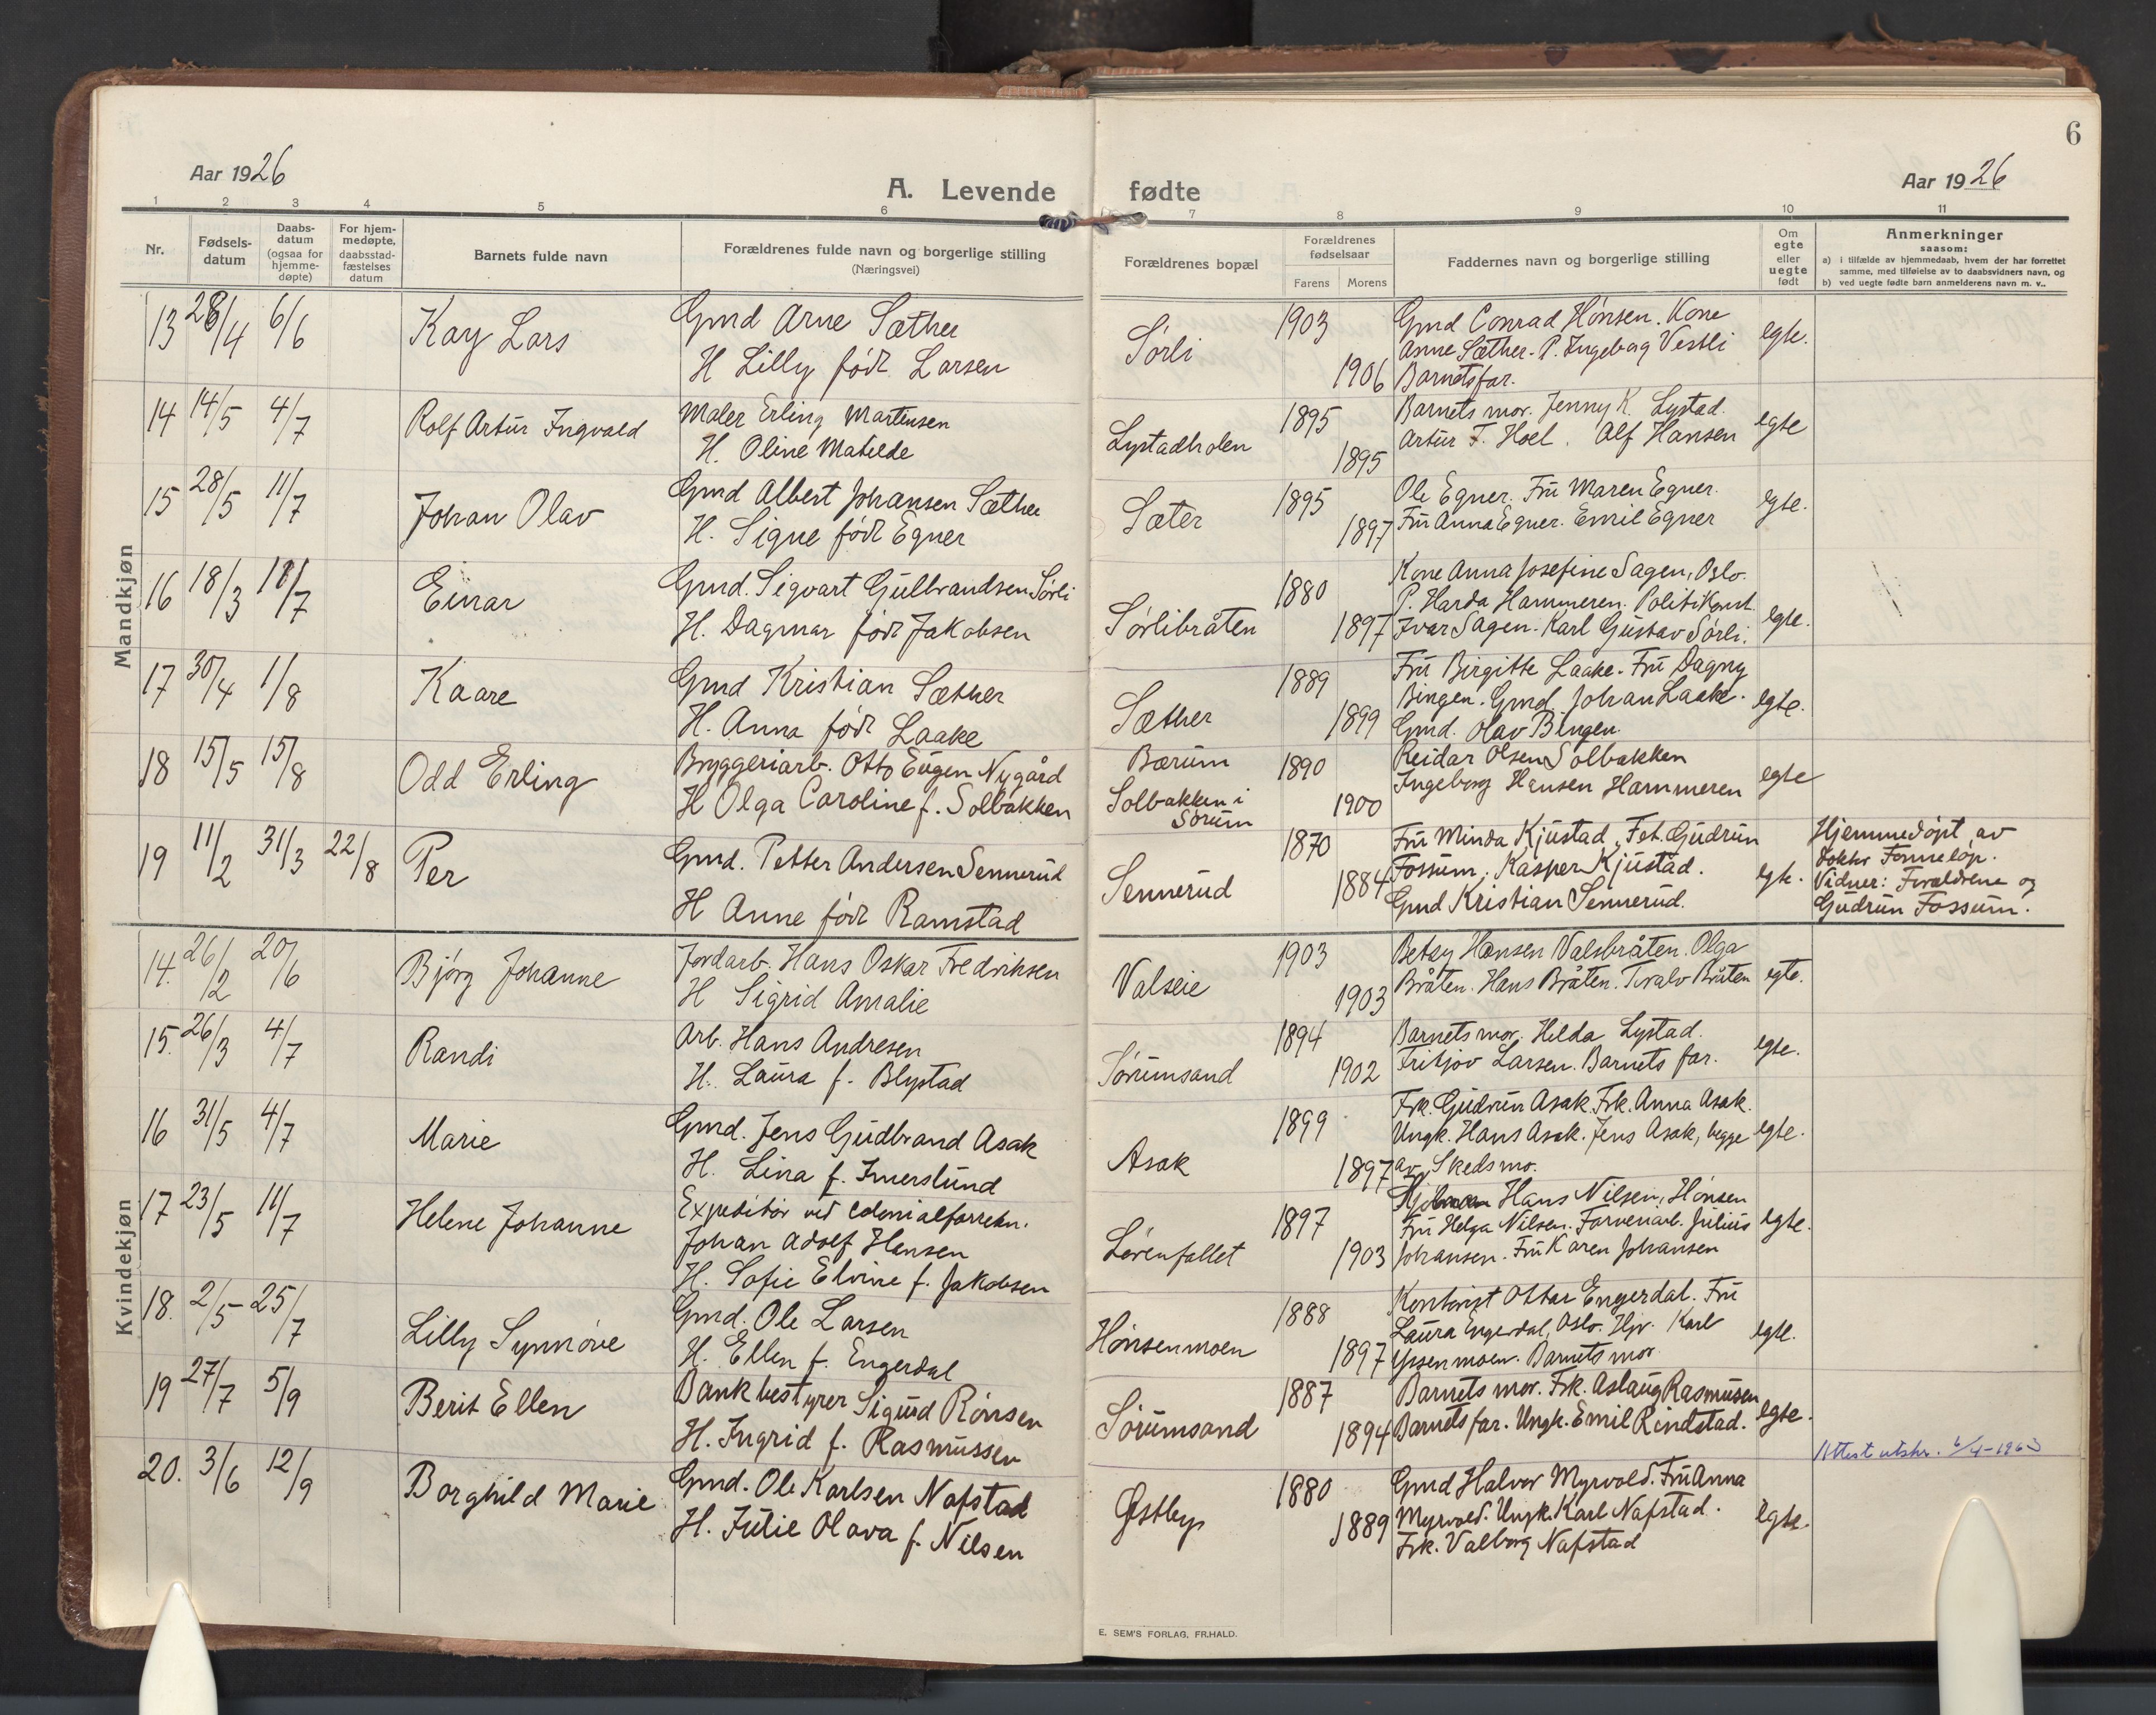 Aar 1926
A. Levende fødte
Aar 1926
6
1 2 3 4 5 6 7 8 9 10 11
Nr.
Fødsels-
datum
Daabs-
datum
(ogsaa for
hjemme-
døpte)
For hjem-
medøpte,
daabsstad-
fæstelses
datum
Barnets fulde navn
Forældrenes fulde navn og borgerlige stilling
(Næringsvei)
Forældrenes bopæl
Forældrenes
fødselsaar
Farens Morens
Faddernes navn og borgerlige stilling
Om
egte
eller
uegte
født
Anmerkninger
saasom:
a) i tilfælde av hjemmedaab, hvem der har forrettet
samme, med tilføielse av to daabsvidners navn, og
b) ved uegte fødte barn anmelderens navn m. v..
Mandkjøn
13 28/4 6/6 Kay Lars
Gmd Arne Sæther
H Lilly født Larsen
Sørli
1903
1906
Gmd Conrad Hönsen. Kone
Anne Sæther. P. Ingeborg Vestli
Barnets far.
egte.
14 14/5 4/7 Rolf Artur Ingvald
Maler Erling Martinsen
H. Oline Matilde
Lystadholen
1895
1895
Barnets mor. Jenny K. Lystad.
Artur F. Hoel. Alf Hansen
egte
15 28/5 11/7 Johan Olav
Gmd Albert Johansen Sæther
H. Signe født Egner
Sæter
1895
1897
Ole Egner. Fru Maren Egner.
Fru Anna Egner. Emil Egner
egte.
16 18/3 11/7 Einar
Gmd. Sigvart Gulbrandsen Sørli
H. Dagmar født Jakobsen
Sørlibråten
1880
1897
Kone Anna Josefine Sagen, Oslo.
P. Harda Hammeren. Politikonst.
Ivar Sagen. Karl Gustav Sørli.
egte.
17 30/4 1/8 Kaare
Gmd Kristian Sæther
H. Anna født Laake
Sæther
1889
1899
Fru Birgitte Laake. Fru Dagny
Bingen. Gmd. Johan Laake.
Gmd. Olav Bingen.
egte.
18 15/5 15/8 Odd Erling
Bryggeriarb. Otto Eugen Nygård
H Olga Caroline f. Solbakken
Bærum
Solbakken i
Sørum
1890
1900
Reidar Olsen Solbakken
Ingeborg Hansen Hammeren
egte
19 11/2 31/3 22/8 Per
Gmd. Petter Andersen Sennerud
H Anne født Ramstad
Sennerud
1870
1884
Fru Minda Kjustad, Fet. Gudrun
Fossum. Kasper Kjustad.
Gmd Kristian Sennerud.
egte.
Hjemmedøpt av
doktor Fonneløp.
Vidner: Forældrene og
Gudrun Fossum.
Kvindekjøn
14. 26/2 20/6 Bjørg Johanne
Jordarb. Hans Oskar Fredriksen
H Sigrid Amalie
Valseie
1903
1903
Betsy Hansen Valsbråten. Olga
Bråten. Hans Bråten. Toralv Bråten
egte.
15. 26/3 4/7 Randi
Arb. Hans Andresen
H. Laura f. Blystad
Sørumsand
1894
1902
Barnets mor. Helda Lystad.
Fritjov Larsen. Barnets far.
egte.
16 31/5 4/7 Marie
Gmd. Jens Gudbrand Asak
H. Lina f. Imerslund
Asak
1899
1897
Frk. Gudrun Asak. Frk. Anna Asak.
Ungk. Hans Asak. Jens Asak, begge
av Skedsmo.
egte.
17 23/5 11/7 Helene Johanne
Expeditør ved Colonialforretn.
Johan Adolf Hansen
H. Sofie Elvine f. Jakobsen
Lørenfallet
1897
1903
Hans Nilsen, Hönsen
Fru Helga Nilsen. Farveriarb. Julius
Johansen. Fru Karen Johansen
egte.
18. 2/5 25/7 Lilly Synnöve
Gmd. Ole Larsen
H. Ellen f. Engerdal
Hönsenmoen
1888
1897
Kontorist Ottar Engerdal. Fru
Laura Engerdal, Oslo. Hjv. Karl
Ypsenmoen. Barnets mor.
egte.
19 27/7 5/9 Berit Ellen
Bankbestyrer Sigurd Rönsen
H. Ingrid f. Rasmussen
Sørumsand
1887
1894
Barnets mor. Frk. Aslaug Rasmussen
Barnets far. Ungk. Emil Rindstad.
egte.
20. 3/6 12/9 Borghild Marie
Gmd. Ole Karlsen Nafstad
H. Julie Olava f. Nilsen
Østby
1880
1889
Gmd Halvor Myrvold. Fru Anna
Myrvold. Ungk. Karl Nafstad.
Frk. Valborg Nafstad
egte.
Attest utskr. 6/4-1963
E. SEM'S FORLAG. FR.HALD.